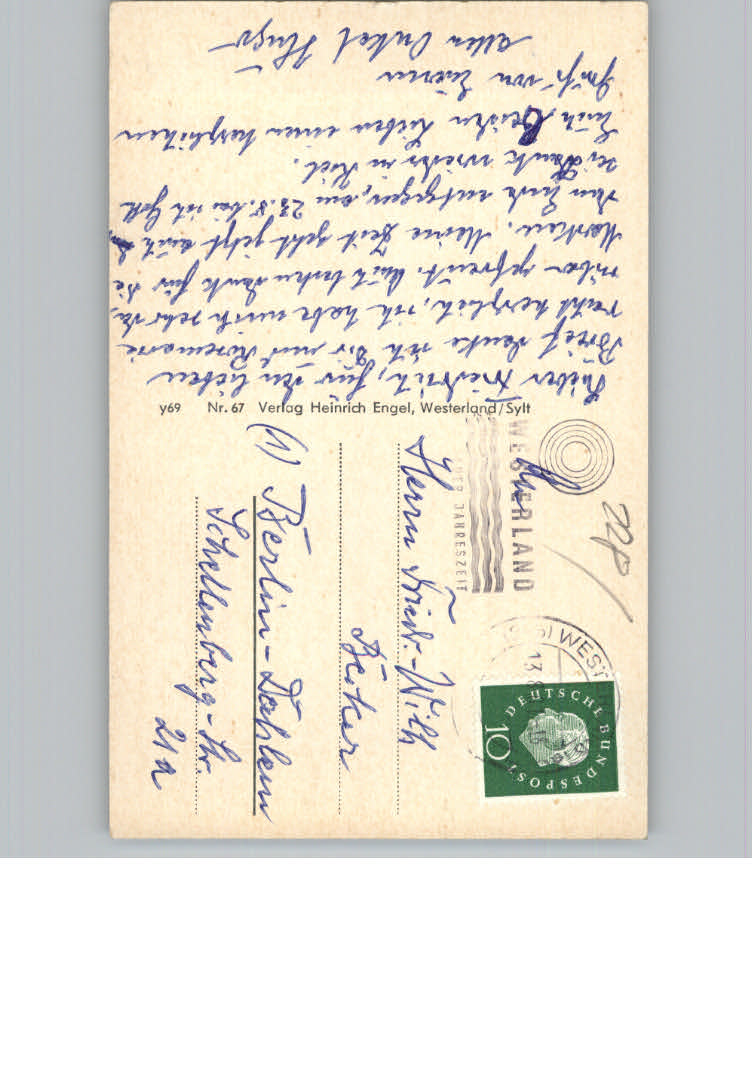 Lieber Friedrich, für den lieben
Brief danke ich Dir und Rosemarie
recht herzlich, ich habe mich sehr da-
rüber gefreut. Auch besten Dank für die
Karten. Meine Zeit geht jetzt auch
dem Ende entgegen, am 23.8. bin ich Gott
sei Dank wieder in Kiel.
Euch beiden Lieben einen herzlichen
Gruß von Eurem
alten Onkel Hugo
y69 Nr. 67 Verlag Heinrich Engel, Westerland/Sylt
WESTERLAND
JAHRESZEIT
WEST
13.8
DEUTSCHE BUNDESPOST
10
Herrn Friedr.-Wilh
Becker
(1) Berlin-Dahlem
Schellenberg-Str.
21a